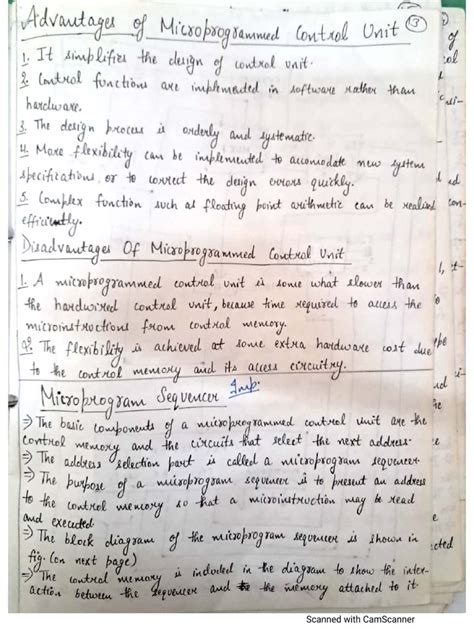 Advantages of Microprogrammed Control Unit 13
1. It simplifies the design of control unit.
2. Control functions are implemented in software rather than
hardware.
3. The design process is orderly and systematic.
4. More flexibility can be implemented to accomodate new system
specifications or to correct the design errors quickly.
5. Complex function such as floating point arithmetic can be realised
efficiently.
Disadvantages Of Microprogrammed Control Unit
1. A microprogrammed control unit is some what slower than
the hardwired control unit, because time required to access the
microinstructions from control memory.
2. The flexibility is achieved at some extra hardware cost due
to the control memory and its access circuitry.
Microprogram Sequencer Imp.
⇒ The basic components of a microprogrammed control unit are the
control memory and the circuits that select the next address.
⇒ The address selection part is called a microprogram sequencer
⇒ The purpose of a microprogram sequencer is to present an address
to the control memory so that a microinstruction may be read
and executed.
⇒ The block diagram of the microprogram sequencer is shown in
fig. (on next page)
⇒ The control memory is included in the diagram to show the inter-
action between the sequencer and the memory attached to it
Scanned with CamScanner